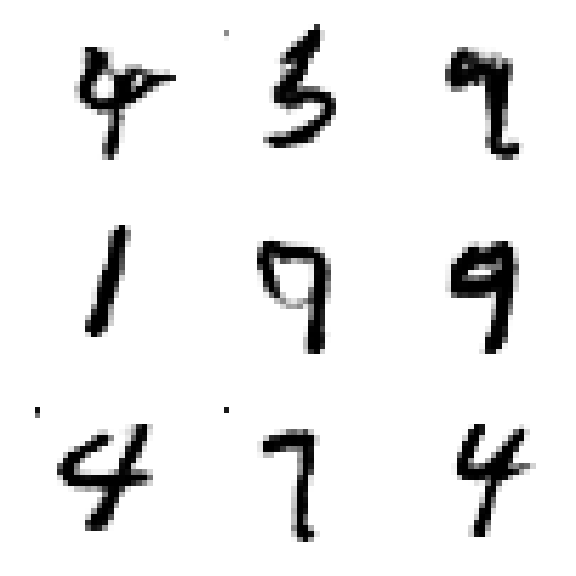 4 5 9
1 9 9
4 7 4